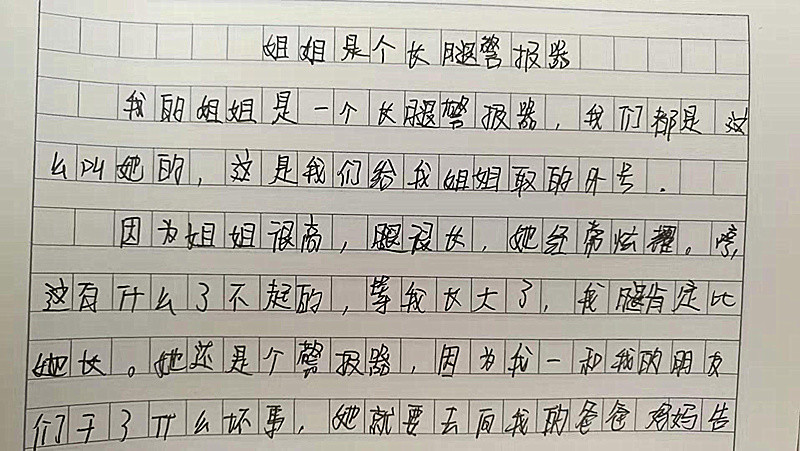 姐姐是个长腿警报器
我的姐姐是一个长腿警报器，我们都是这
么叫她的，这是我们给我姐姐取的外号.
因为姐姐很高，腿很长，她经常炫耀。哼，
这有什么了不起的，等我长大了，我腿肯定比
她长。她还是个警报器，因为我一和我的朋友
们干了什么坏事，她就要去向我的爸爸妈妈告